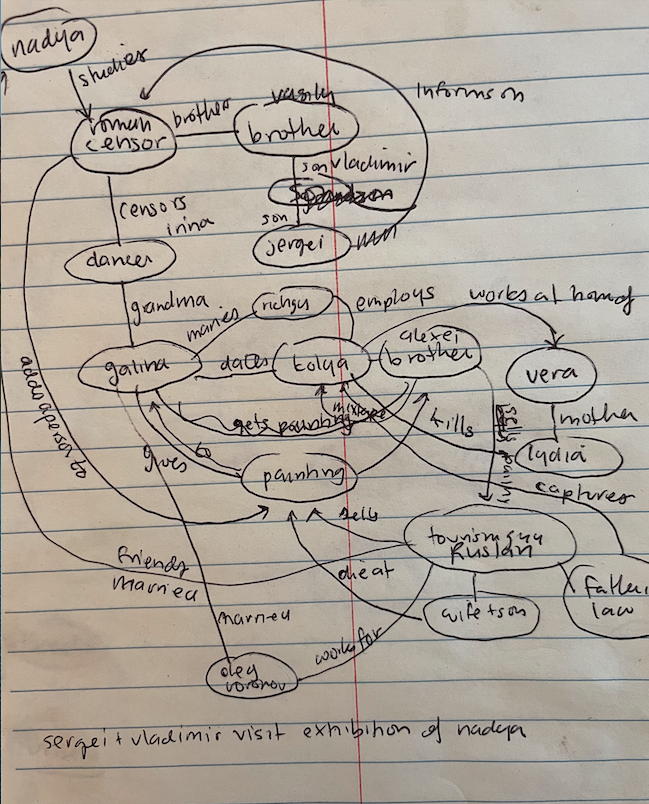 nadya
studies
Informs on
vasily
brother
roman
censor
brother
son vladimir
censors
irina
son
jergei
dancer
grandma
richguy
employs
works at home of
maries
alexei
brother
galina
dates
tolya
vera
mother
adds a person to
mixtape
gets painting
kills
sells
lydia
gives
to
painting
captures
sells
tourism guy
Ruslan
Friends
married
die at
Father
law
wife + son
married
works for
oleg
voronov
sergei + vladimir visit exhibition of nadya